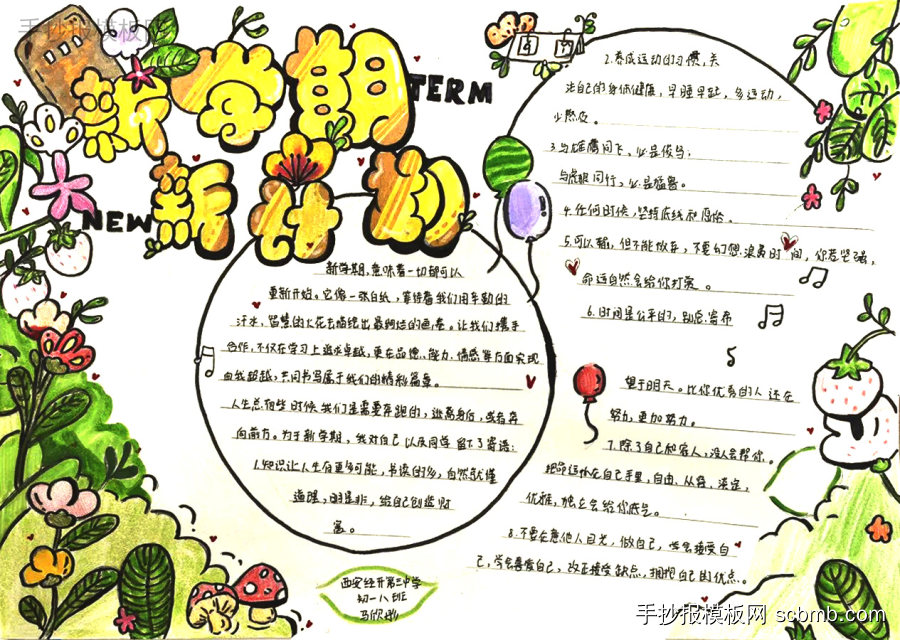 手抄报模板网
新学期
TERM
NEW
新计划
新学期,意味着一切都可以
重新开始。它像一张白纸,等待着我们用辛勤的
汗水,智慧的火花去描绘出最绚丽的画卷。让我们携手
合作,不仅在学习上追求卓越,更在品德、能力、情感等方面实现
自我超越,共同书写属于我们的精彩篇章。
人生总有些时候我们是需要奔跑的,逃离身后,或者奔
向前方。为了新学期,我对自己以及同学留下了寄语:
1.知识让人生有更多可能,书读的多,自然就懂
道理,明是非,给自己创造财
富。
2.养成运动的习惯,关
注自己的身体健康,早睡早起,多运动,
少熬夜。
3.与雄鹰同飞,必是俊鸟;
与虎狼同行,必是猛兽。
4.任何时候,坚持底线和原则。
5.可以输,但不能放弃,不要幻想浪费时间,你若坚强,
命运自然会给你打赏。
6.时间是公平的,别总寄希
望于明天。比你优秀的人还在
努力,更加努力。
7.除了自己和家人,没人会帮你。
把命运抓在自己手里,自由,从容,淡定,
优雅,独立会给你底气。
8.不要在意他人目光,做自己,学会接受自
己,学会喜爱自己,改正接受缺点,拥抱自己的优点。
西安经开第三中学
初一八班
马欣彤
手抄报模板网 scbmb.com